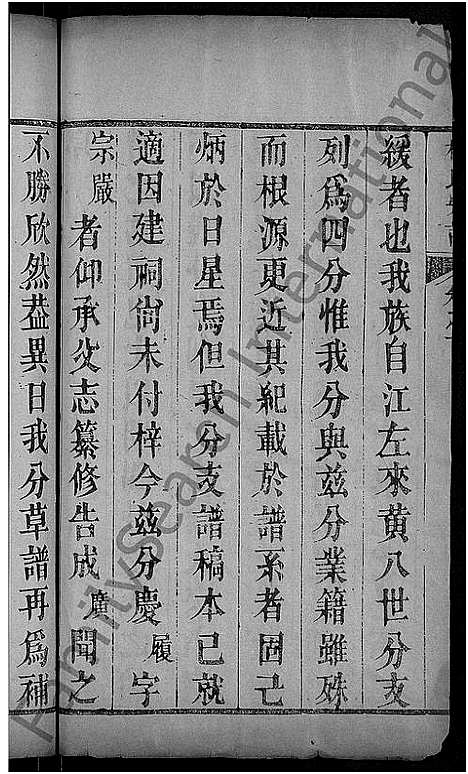 緩者也我族自江左來黄八世分支
列爲四分惟我分與茲分業籍雖殊
而根源更近其紀載於譜系者固已
炳於日星焉但我分支譜稿本已就
適因建祠尚未付梓今茲分慶履字
宗嚴者仰承父志纂修告成廣聞之
不勝欣然葢異日我分草譜再爲補
FamilySearch International